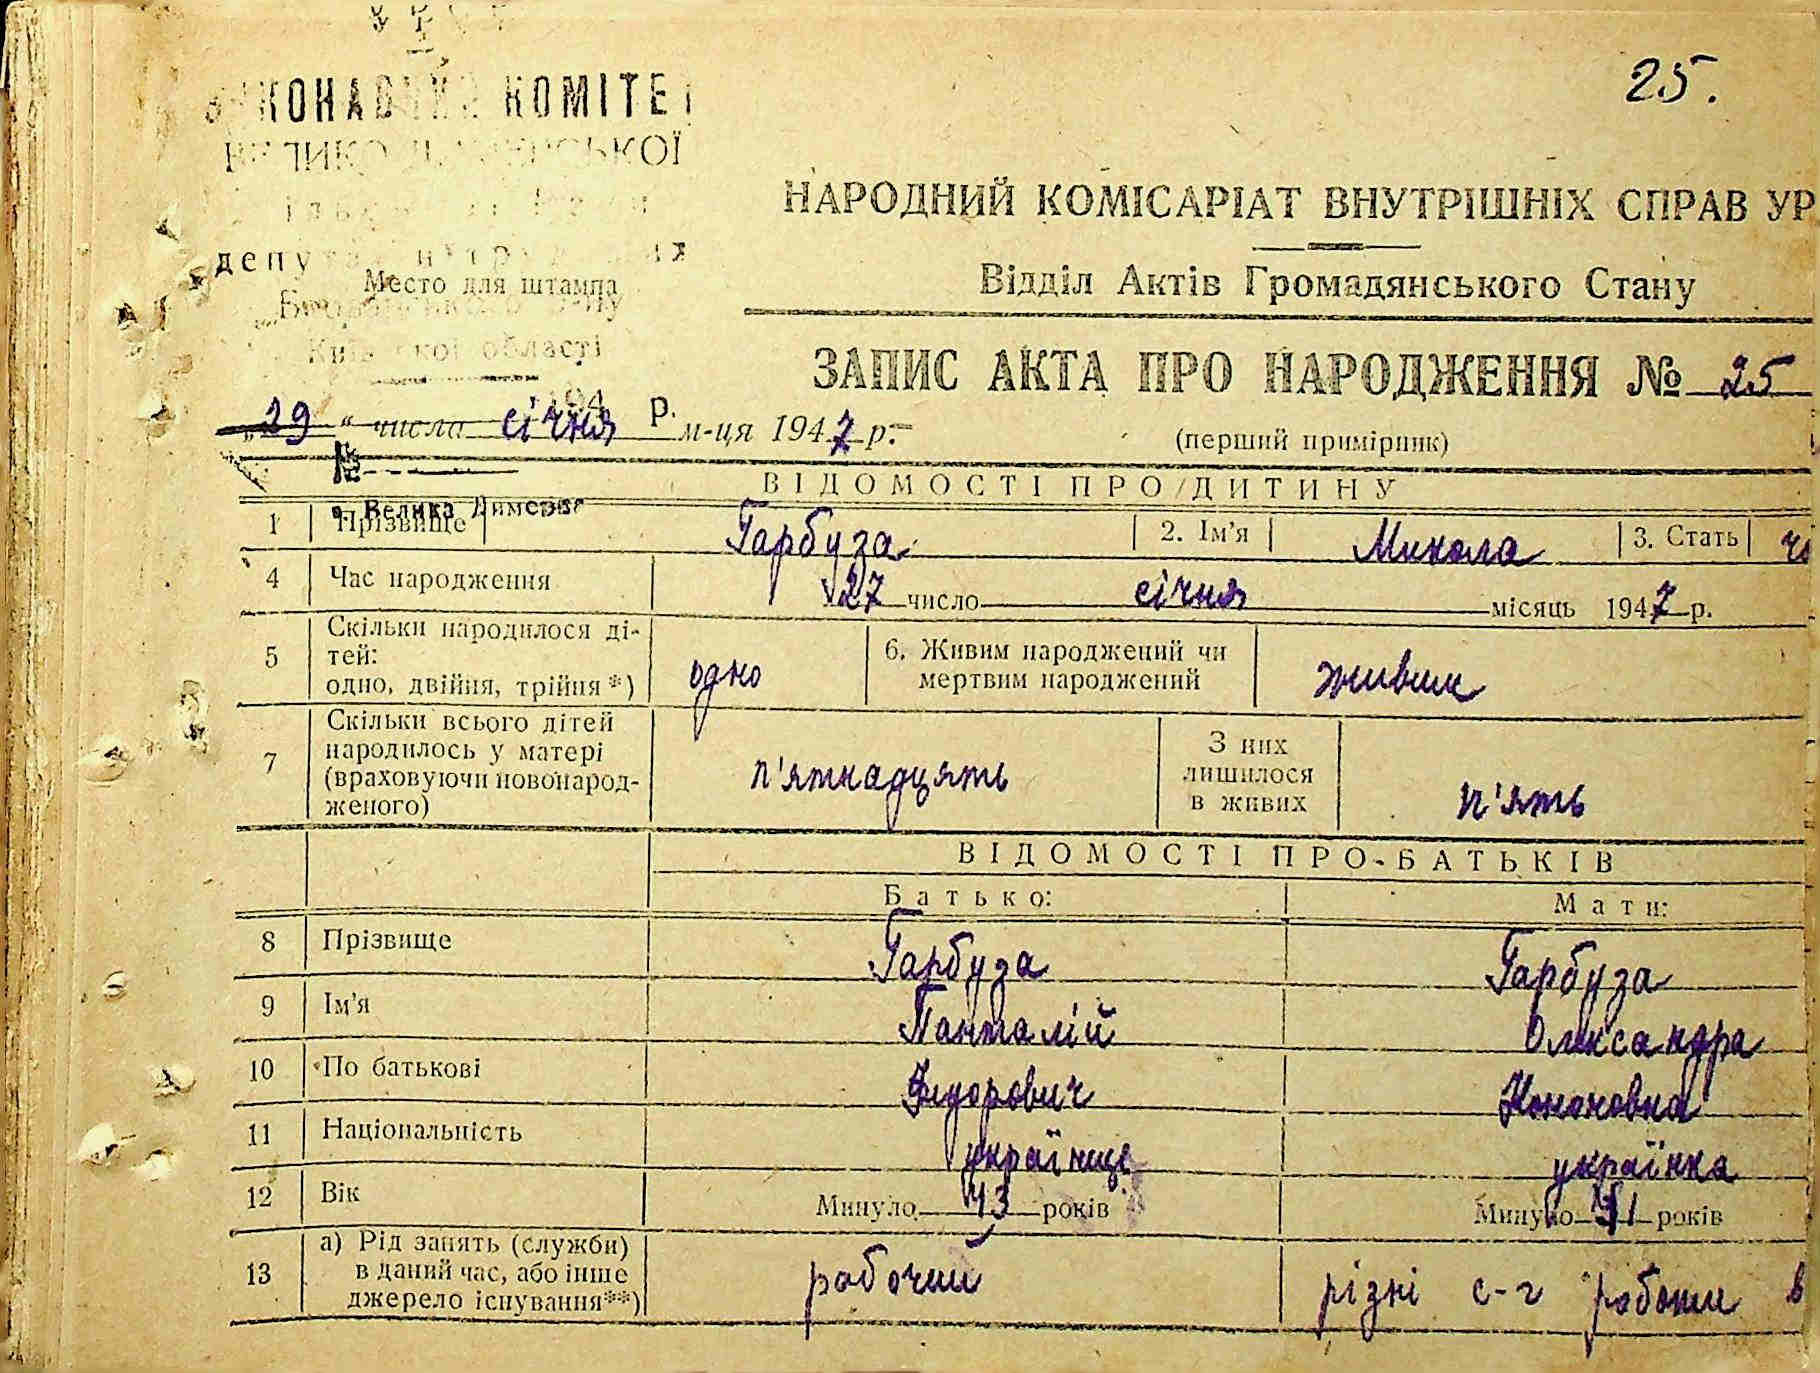 25.
ВИКОНАВЧИЙ КОМІТЕТ
ВЕЛИКО ДИМЕРСЬКОЇ
депутатів трудящих
Место для штампа
Київської області
194 р.
№
с. Велика Димерка
НАРОДНИЙ КОМІСАРІАТ ВНУТРІШНІХ СПРАВ УР
Відділ Актів Громадянського Стану
ЗАПИС АКТА ПРО НАРОДЖЕННЯ № 25
„29“ числа січня м-ця 1947 р.
(перший примірник)
ВІДОМОСТІ ПРО ДИТИНУ
1 Прізвище Гарбуза 2. Ім'я Микола 3. Стать
4 Час народження 27 число січня місяць 1947 р.
5 Скільки народилося ді-
тей:
одно, двійня, трійня*) одно 6. Живим народжений чи
мертвим народжений живим
7 Скільки всього дітей
народилось у матері
(враховуючи новонарод-
женого) п'ятнадцять З них
лишилося
в живих п'ять
ВІДОМОСТІ ПРО БАТЬКІВ
Батько: Мати:
8 Прізвище Гарбуза Гарбуза
9 Ім'я Панталій Олександра
10 По батькові Кононовна
11 Національність українець українка
12 Вік Минуло 43 років Минуло років
13 а) Рід занять (служби)
в даний час, або інше
джерело існування**) робочий різні с-г роботи в